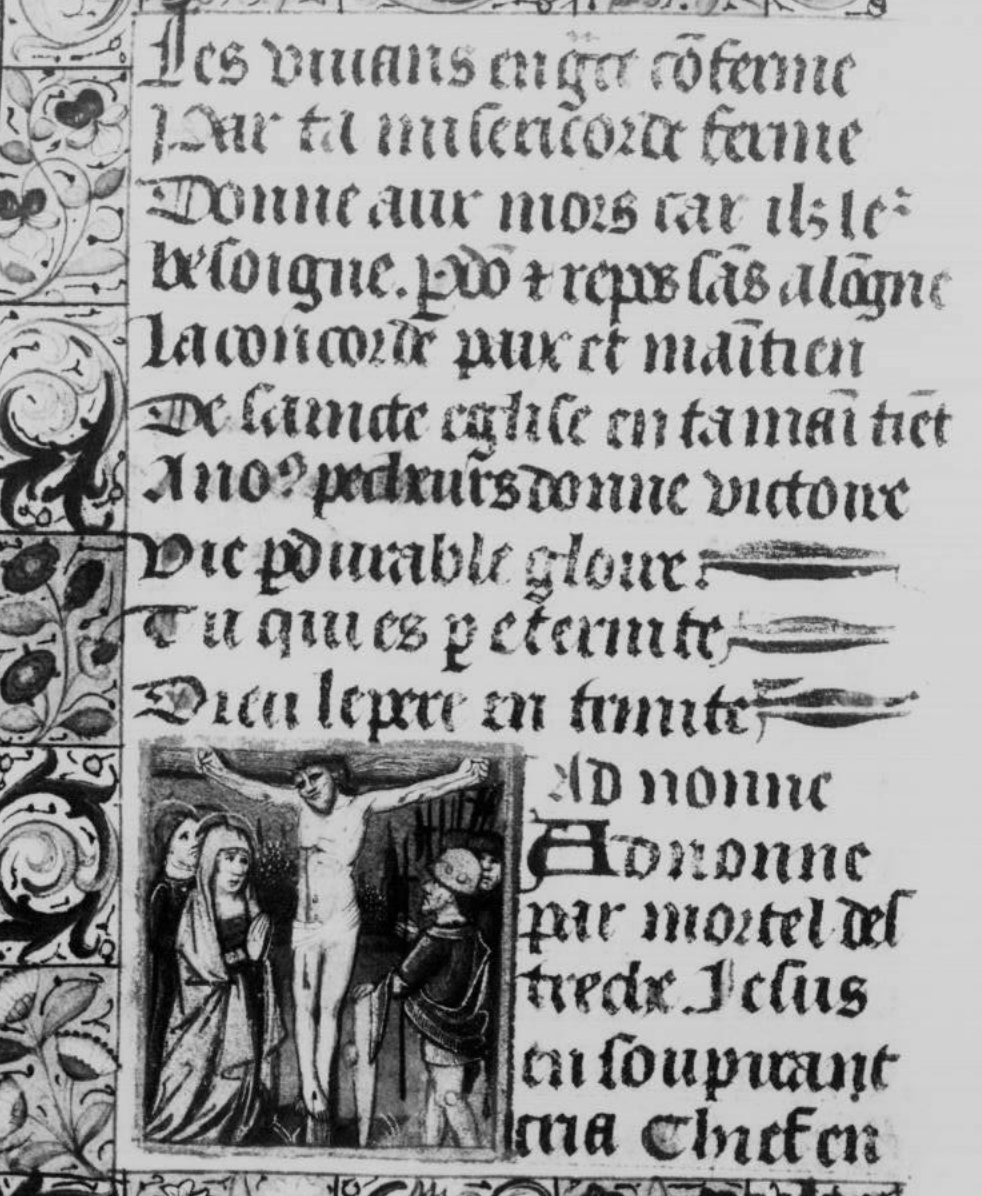 Les viuans en gͣce cōferme
Par ta misericorde ferme
Donne aux mors car ilz leᷣ
besoigne. p̱dō ⁊ repos sās alōgne
La concorde paix et maītien
De saincte eglise en ta maī tiēt
A noꝰ pecheurs donne victoire
Vie p̱durable gloire.
Tu qui es p̱ eternite
Dieu le pere en trinite
Ad nonne
Ad nonne
par mortel des
treche Jesus
en soupirant
cria Chief en